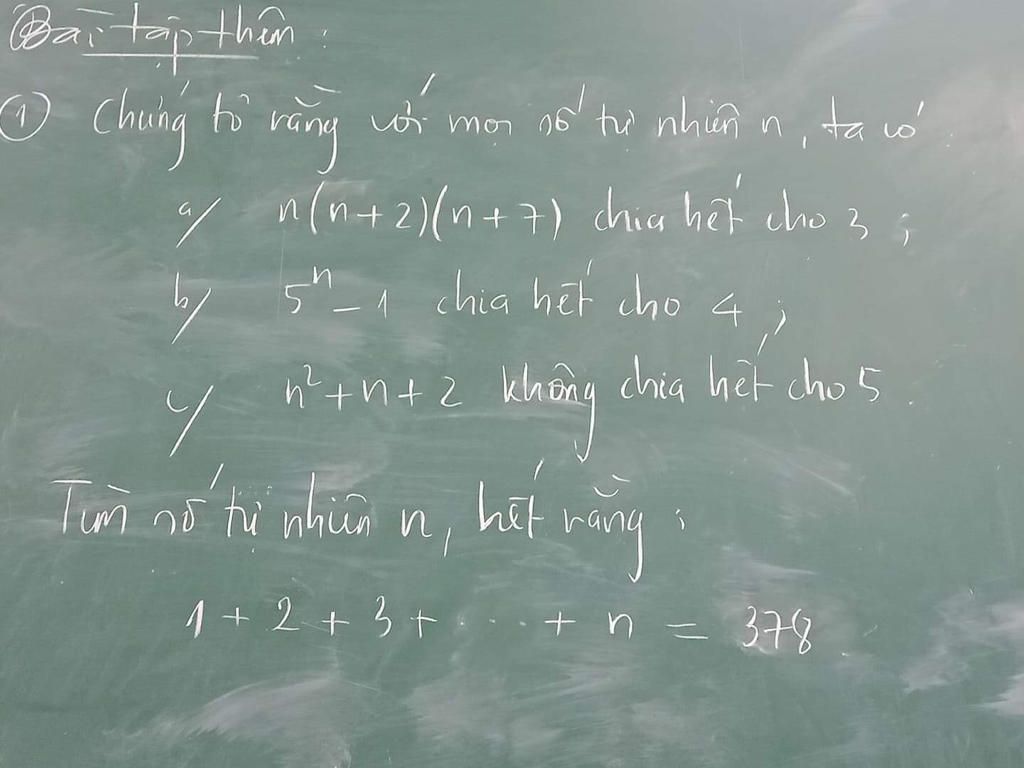 Bài tập thêm :
① Chứng tỏ rằng với mọi số tự nhiên n, ta có
a/ n(n+2)(n+7) chia hết cho 3 ;
b/ 5ⁿ - 1 chia hết cho 4 ;
c/ n² + n + 2 không chia hết cho 5.
Tìm số tự nhiên n, biết rằng :
1 + 2 + 3 + ... + n = 378.